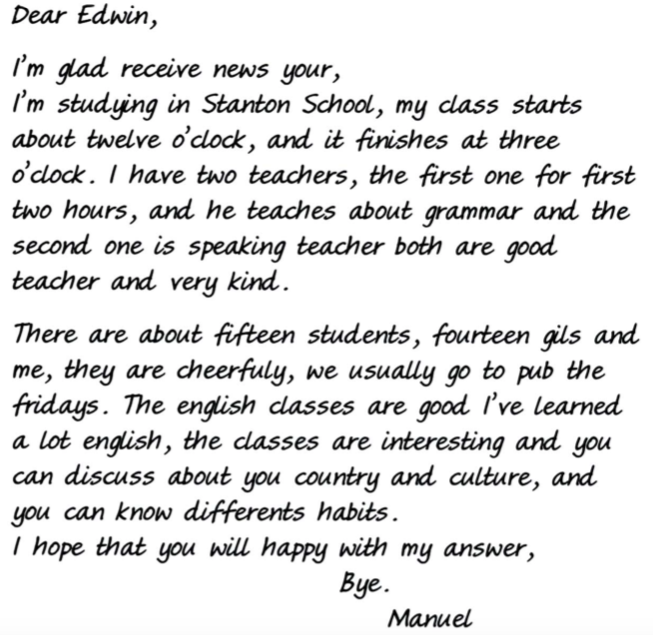 Dear Edwin,
I'm glad receive news your,
I'm studying in Stanton School, my class starts
about twelve o'clock, and it finishes at three
o'clock. I have two teachers, the first one for first
two hours, and he teaches about grammar and the
second one is speaking teacher both are good
teacher and very kind.
There are about fifteen students, fourteen gils and
me, they are cheerfuly, we usually go to pub the
fridays. The english classes are good I've learned
a lot english, the classes are interesting and you
can discuss about you country and culture, and
you can know differents habits.
I hope that you will happy with my answer,
Bye.
Manuel